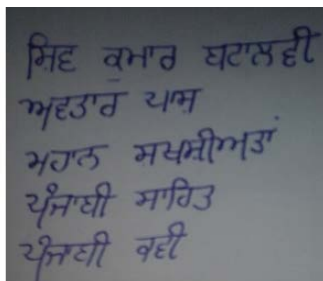 ਸ਼ਿਵ ਕੁਮਾਰ ਬਟਾਲਵੀ
ਅਵਤਾਰ ਪਾਸ਼
ਮਹਾਨ ਸਖਸ਼ੀਅਤਾਂ
ਪੰਜਾਬੀ ਸਾਹਿਤ
ਪੰਜਾਬੀ ਕਵੀ